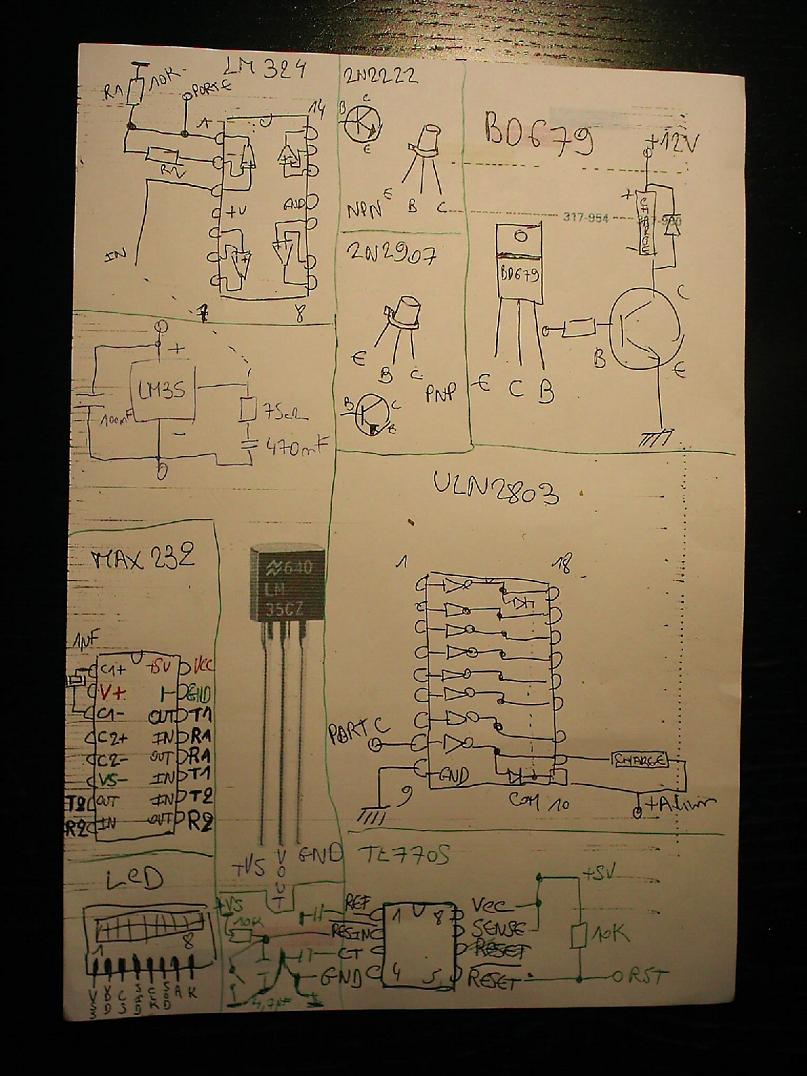 LM 324
R1
10K
PORTE
R2
1
14
+V
GND
IN
7
8
2N2222
B
C
E
NPN
E
B
C
2N2907
E
B
C
PNP
B
C
E
BD679
+12V
317-954
+
CHARGE
BD679
E C B
B
C
E
LM35
+
-
100mF
75Ω
470mF
MAX 232
1µF
C1+ +5V VCC
V+ GND
C1- OUT T1
C2+ IN R1
C2- OUT R1
VS- IN T1
T2 OUT IN T2
R2 IN OUT R2
640
LM
35CZ
+VS
VOUT
GND
ULN2803
1
18
PORT C
GND
9
COM 10
CHARGE
+Alim
LED
1
8
TL7705
+VS
10K
4,7µF
REF
RESIN
CT
GND
1 8
4 5
VCC
SENSE
RESET
RESET
+5V
10K
RST